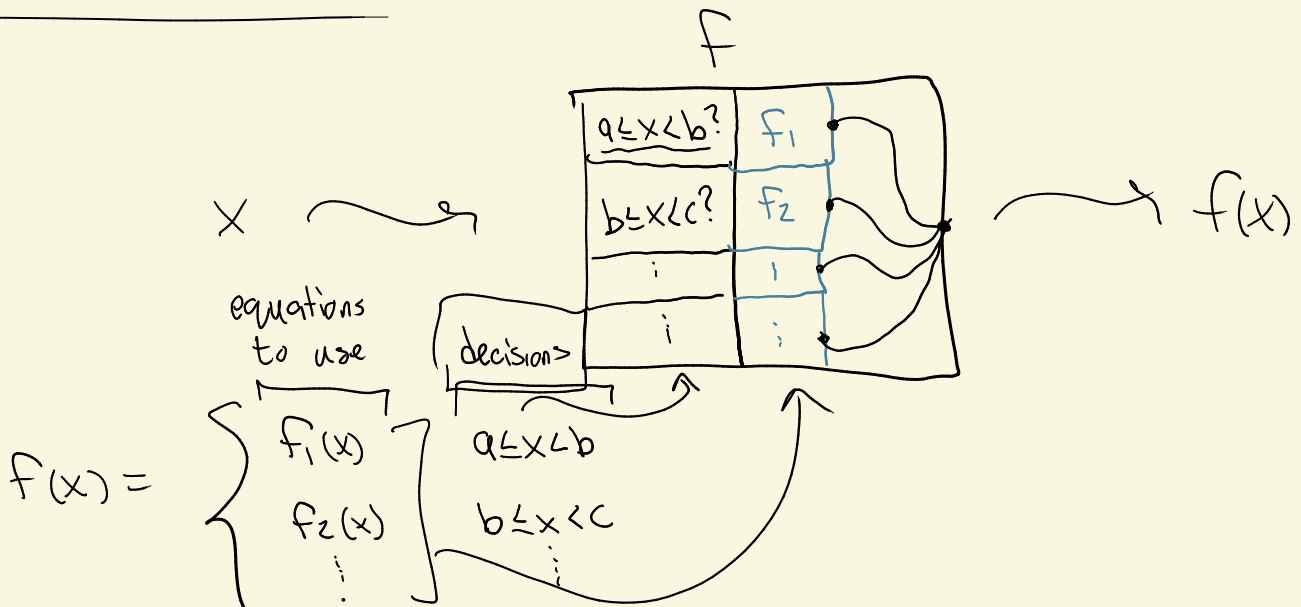 f
a≤x<b? f₁
x b≤x<c? f₂ f(x)
⋮ ⋮
equations
to use decisions ⋮ ⋮
f₁(x) a≤x<b
f(x) = {
f₂(x) b≤x<c
⋮ ⋮